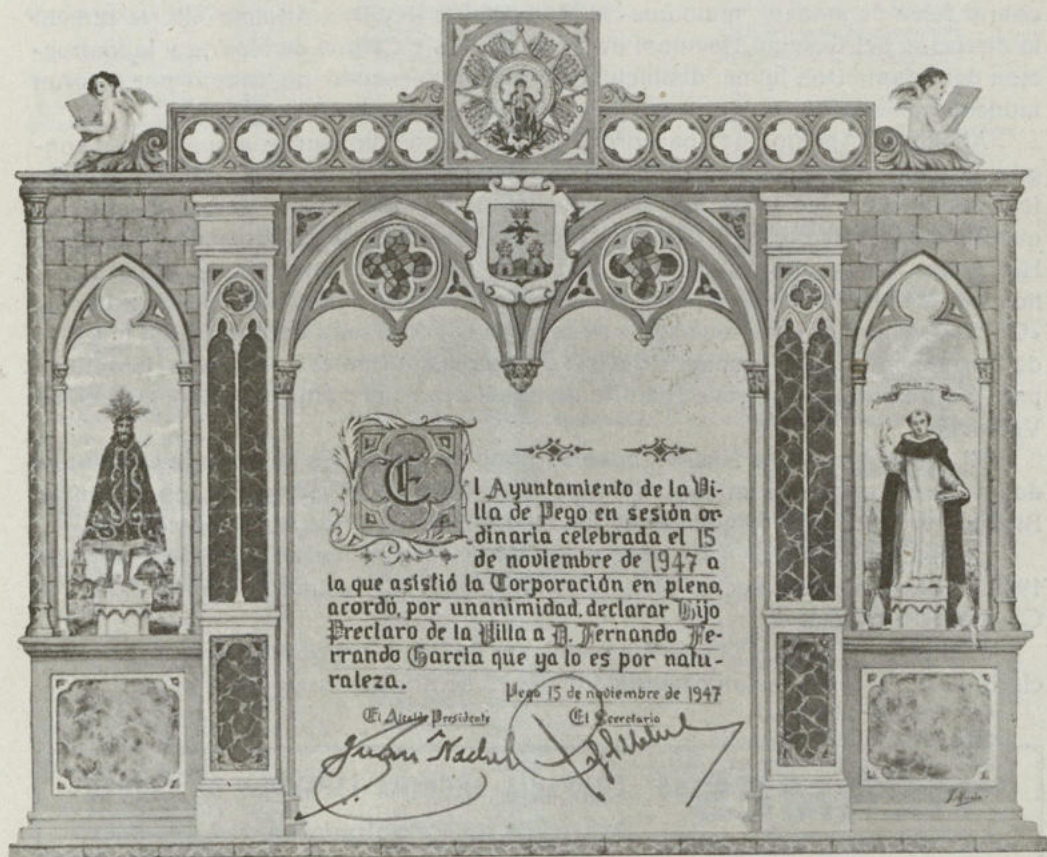 El Ayuntamiento de la Vi-
lla de Pego en sesión or
dinaria celebrada el 15
de noviembre de 1947 a
la que asistió la Corporación en pleno,
acordó, por unanimidad, declarar Hijo
Preclaro de la Villa a D. Fernando Fe-
rrando García que ya lo es por natu-
raleza.
Pego 15 de noviembre de 1947
El Alcalde Presidente
El Secretario